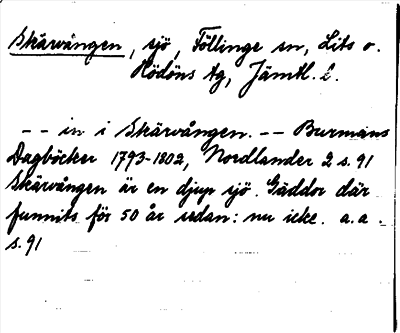 Skärvången, sjö, Föllinge sn, Lits o.
Rödöns tg, Jämtl. l.
-- in i Skärvången. -- Burmans
Dagböcker 1793-1802, Nordlander 2 s. 91
Skärvången är en djup sjö. Gäddor där
funnits för 50 år sedan: nu icke. a.a.
s. 91